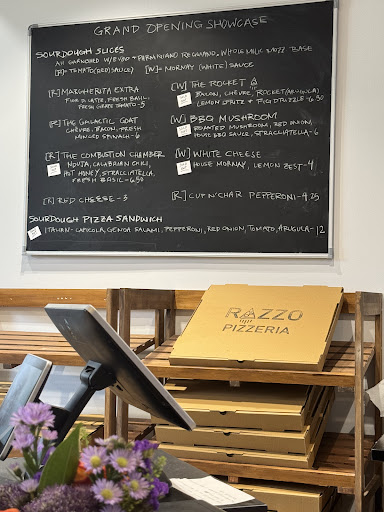 GRAND OPENING SHOWCASE
SOURDOUGH SLICES
ALL GARNISHED W/EVOO & PARMIGIANO REGGIANO, WHOLE MILK MOZZ BASE
[R]=TOMATO (RED) SAUCE [W]= MORNAY (WHITE) SAUCE
[R] MARGHERITA EXTRA
FIOR DI LATTE, FRESH BASIL,
FRESH GRATED TOMATO -5
[R] THE GALACTIC GOAT
CHÈVRE, BACON, FRESH
MINCED SPINACH -6
[R] THE COMBUSTION CHAMBER
NDUJA, CALABRIAN CHILI,
HOT HONEY, STRACCIATELLA,
FRESH BASIL -6.50
[R] RED CHEESE -3
[W] THE ROCKET
BACON, CHÈVRE, ROCKET (ARUGULA)
LEMON SPRITZ & FIG DRIZZLE -6.50
[W] BBQ MUSHROOM
ROASTED MUSHROOM, RED ONION,
HOUSE BBQ SAUCE, STRACCIATELLA -6
[W] WHITE CHEESE
HOUSE MORNAY, LEMON ZEST -4
[R] CUP N' CHAR PEPPERONI -4.25
SOURDOUGH PIZZA SANDWICH
ITALIAN - CAPICOLA, GENOA SALAMI, PEPPERONI, RED ONION, TOMATO, ARUGULA -12
RAZZO
PIZZERIA